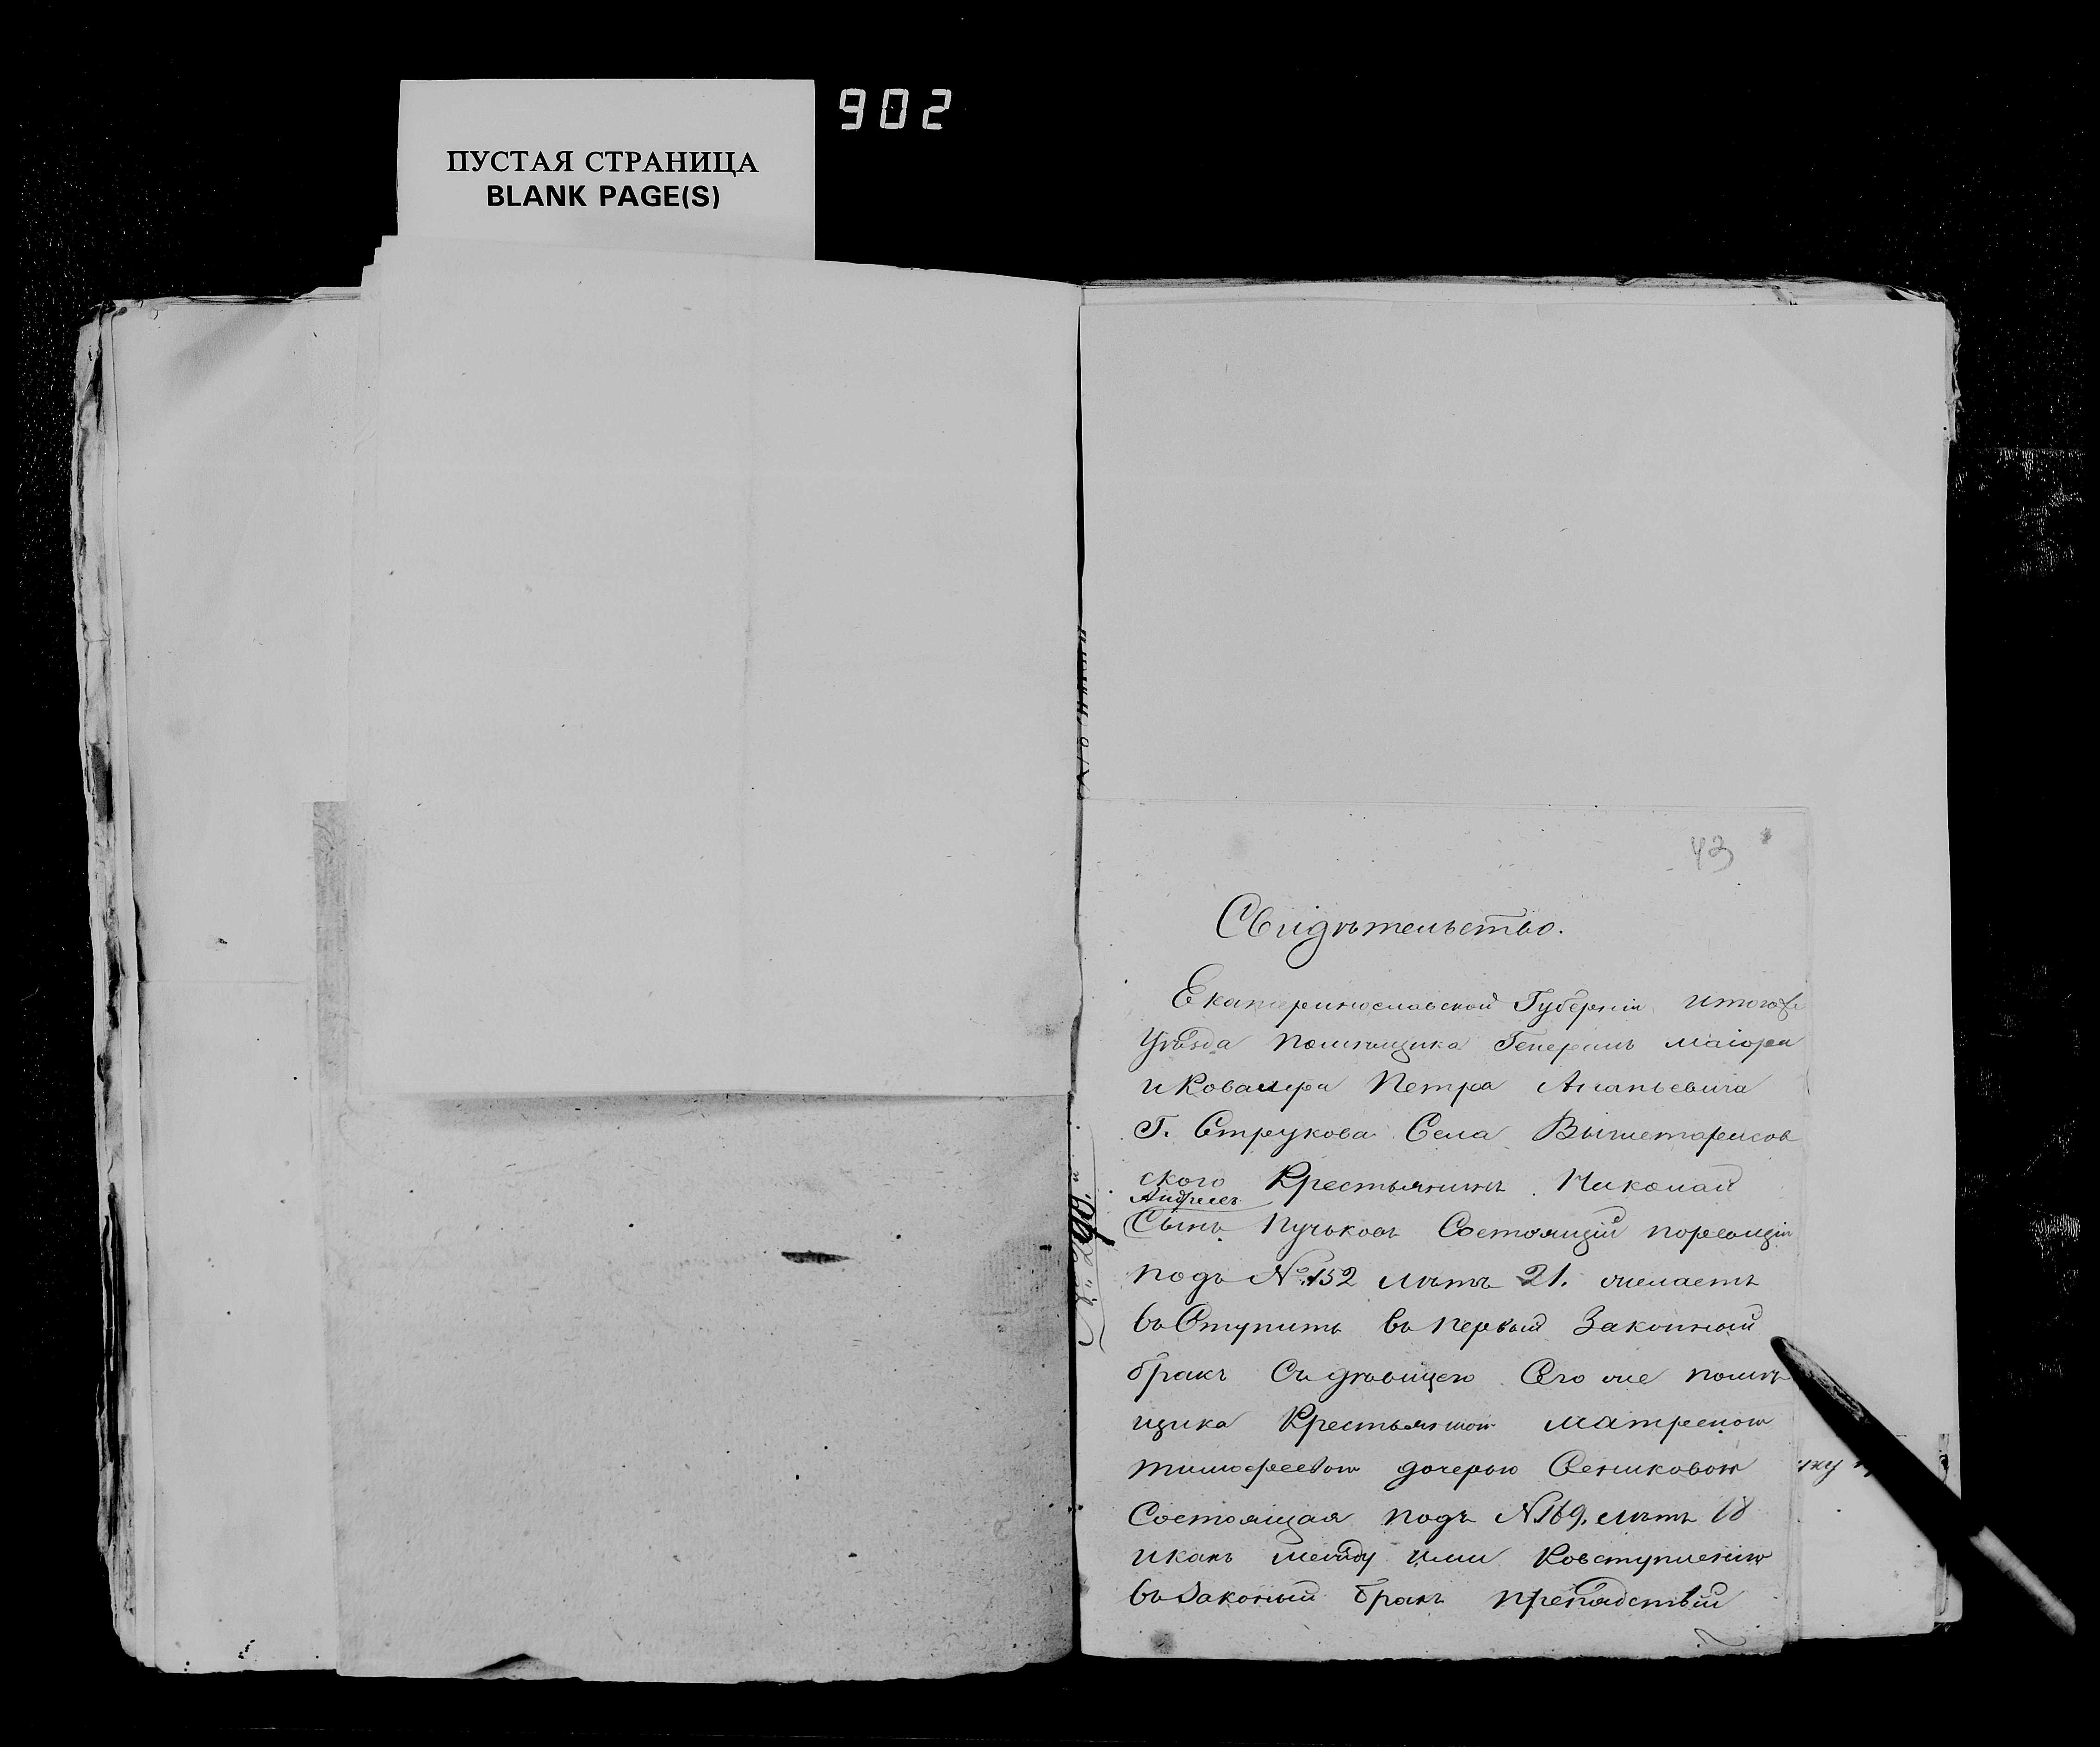 902
ПУСТАЯ СТРАНИЦА
BLANK PAGE(S)
43
Свидѣтельство.
Екатеринославской Губерніи итогоже
Уѣзда помѣщика Генералъ маіора
и Ковалера Петра Ананьевича
Г. Струкова Села Вышетарасов
ского Крестьянинъ Николай
Андреевъ
Сынъ Пучковъ Состоящій поревизіи
подъ №152 лѣтъ 21. желаетъ
въ Ступить въ первый Законный
бракъ Съ дѣвицею Его же помѣ
щика Крестьянкою матреною
тимофеевою дочерью Сениковою
Состоящая подъ №169. лѣтъ 18
икакъ между ими Ковступленію
въ Законый бракъ препядствій